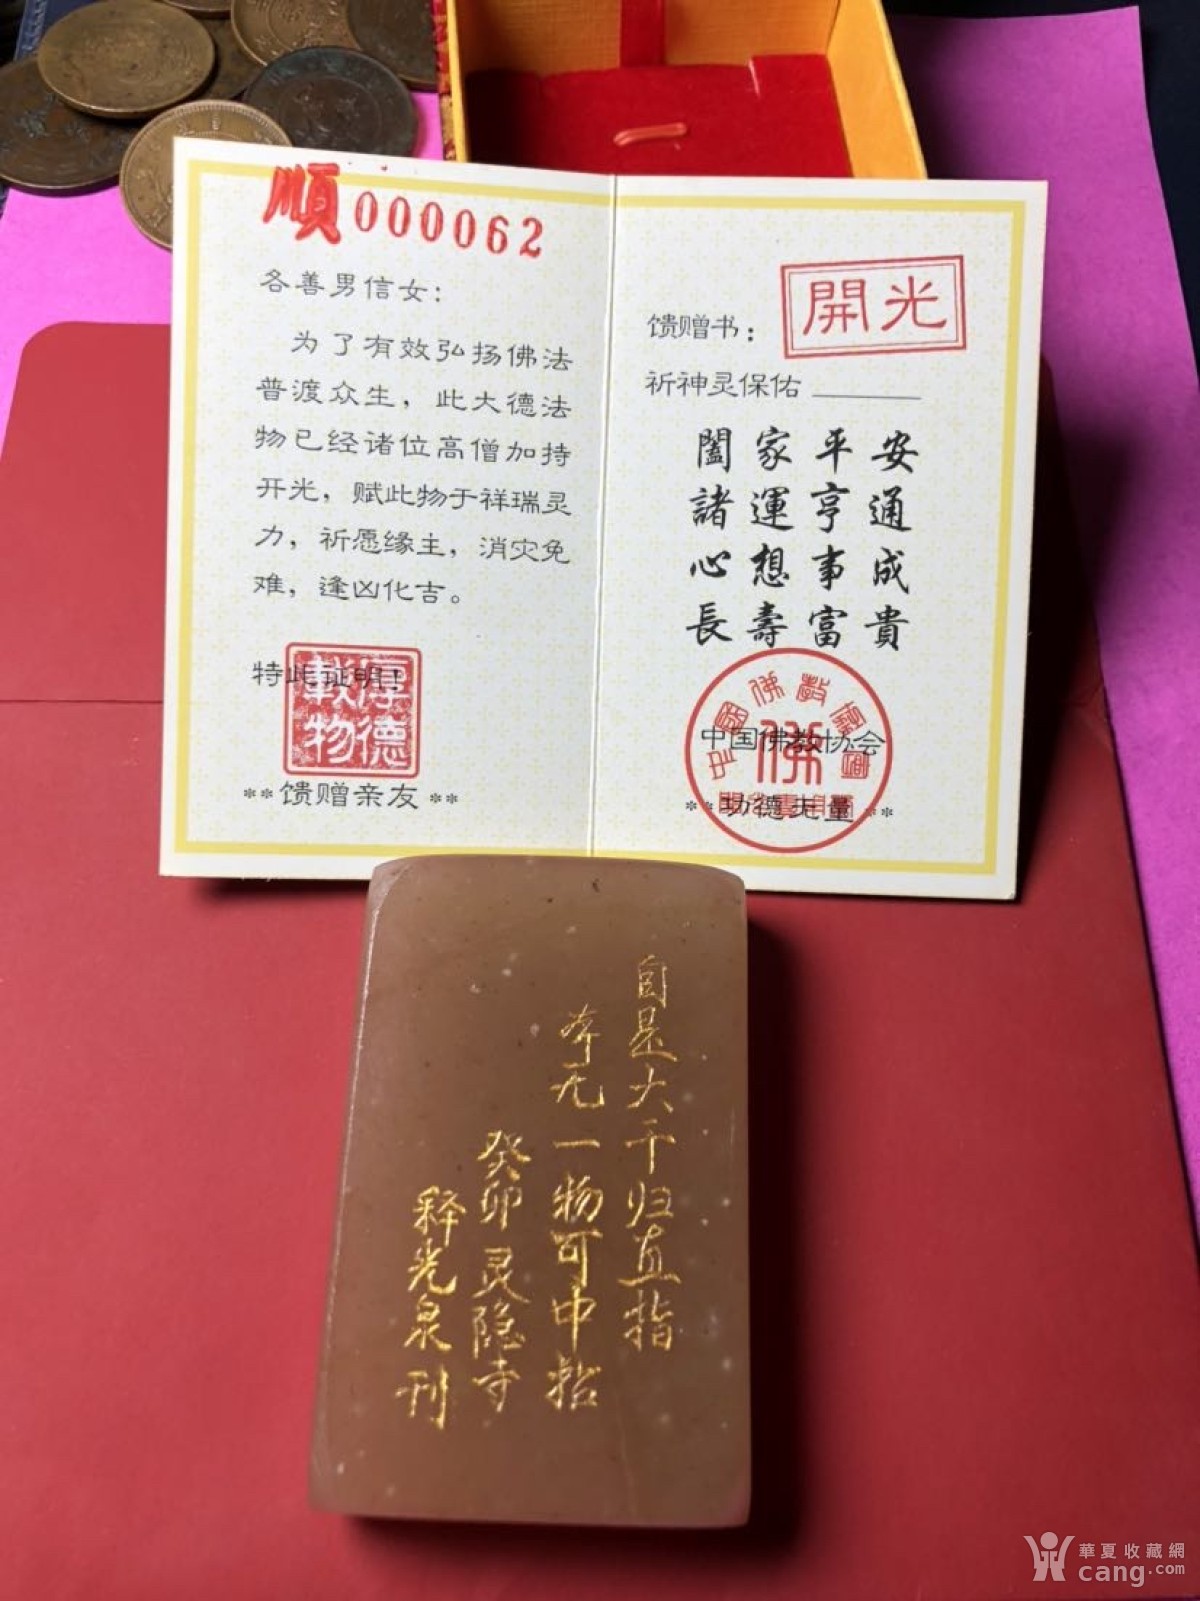 順000062
各善男信女：
为了有效弘扬佛法
普渡众生，此大德法
物已经诸位高僧加持
开光，赋此物于祥瑞灵
力，祈愿缘主，消灾免
难，逢凶化吉。
特此证明！
厚德載物
**馈赠亲友**
開光
馈赠书：
祈神灵保佑
闔家平安
諸運亨通
心想事成
長壽富貴
佛
中国佛教协会
**功德无量**
自是大千归直指
本无一物可中拈
癸卯灵隐寺
释光泉刊
華夏收藏網
cang.com